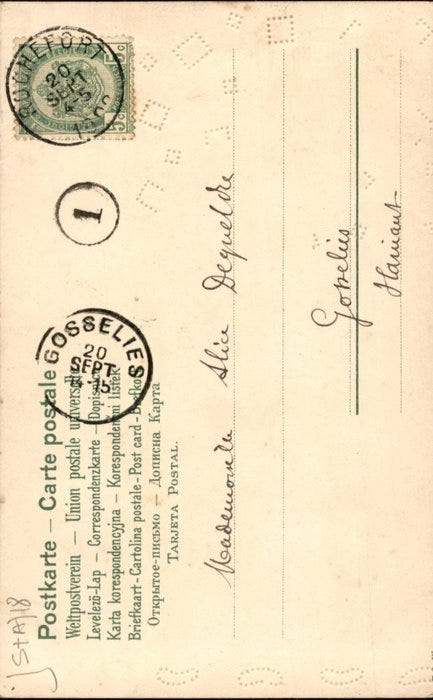 ROCHEFORT
20
SEPT
4-5
1
GOSSELIES
20
SEPT
4-15
Postkarte — Carte postale
Weltpostverein — Union postale universelle
Levelező-Lap — Correspondenzkarte — Dopisnice
Karta korespondencyjna — Korespondenční lístek
Briefkaart - Cartolina postale - Post card - Brefkort
Открытое-письмо — Дописна Карта
TARJETA POSTAL.
Mademoiselle Alice Dequeldre
Gosselies
Hainaut